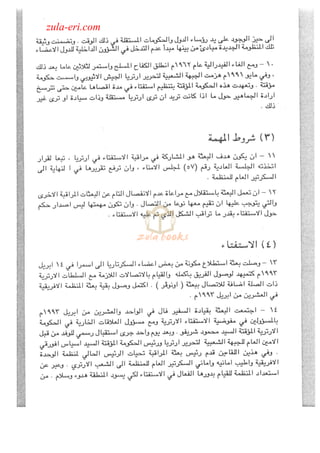 zula-eri.com
الى حيز الوجود على يد رؤساء الدول والحكومات المستقلة في ذلك الوقت . وتضمنت وثيقة
تلك المنظومة الجديدة مبادئ من بينها مبدأ عدم التدخل في الشؤون الداخلية للدول الاعضاء
١٠ – ومع الغاء الفيدرالية عام ١٩٦٢م انطلق الكفاح المسلح واستمر ثلاثين عاما بعد ذلك
، وفي مايو ١٩٩١م هزمت الجبهة الشعبية لتحرير ارتريا الجيش الاثيوبي واسست حكومة
مؤقتة . وتعهدت هذه الحكومة المؤقتة بتنظيم استفتاء في مدة اقصاها عامين حتى تترسخ
ارادة الجماهير حول ما اذا كانت تريد ان ترى ارتريا مستقلة وذات سيادة او ترى غير
ذلك .
(٣) شروط المهمة
١١ – ان يكون هدف البعثة هو المشاركة في مراقبة الاستفتاء في ارتريا ، تبعا لقرار
اتخذته الجلسة العادية رقم (٥٧) لمجلس الامناء ، وان ترفع تقريرها في النهاية الى
السكرتير العام للمنظمة .
١٢ – ان تعمل البعثة باستقلال مع مراعاة عدم الانفصال التام عن البعثات المراقبة الاخرى
والتي يتوجب عليها ان تقيم معها نوعا من اتصال . وان تكون مهمتها ليس اصدار حكم
حول الاستفتاء بقدر ما تراقب الشكل الذي تم عليه الاستفتاء .
zula books
(٤) الاستفتاء
١٣ – وصلت بعثة استطلاع مكونة من بعض اعضاء السكرتارية الى اسمرا في ١٤ ابريل
١٩٩٣م كتمهيد لوصول الفريق بأكمله والقيام بالاتصالات اللازمة مع السلطات الارترية
ذات الصلة اضافة للاتصال ببعثة ( اونوفر ) . اكتمل وصول بقية بعثة المنظمة الافريقية
في العشرين من ابريل ١٩٩٣م .
١٤ – اجتمعت البعثة بقيادة السفير فال في الواحد والعشرين من ابريل ١٩٩٣م
بالمسؤولين في مفوضية الاستفتاء الارترية ومع مسؤول العلاقات الخارجية في الحكومة
الارترية المؤقتة السيد محمود شريفو . وبعد يوم واحد جرى استقبال رسمي للوفد من قبل
الامين العام للجبهة الشعبية لتحرير ارتريا ورئيس الحكومة المؤقتة السيد اسياس افورقي
. وفي هذين اللقاءين قدم رئيس بعثة المراقبة تحيات الرئيس الحالي لمنظمة الوحدة
الافريقية واطيب امانيه واماني السكرتير العام للمنظمة الى الشعب الارتري . وعبر عن
استعداد المنظمة للقيام بدورها الفعال في الاستفتاء لكي يسود المنطقة هدوء وسلام . من